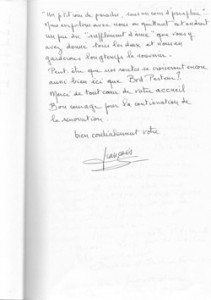 "Un p'tit coin de paradis, dans un coin d'parapluie"
Nous emportons avec nous en quittant cet endroit
un peu du "supplément d'âme" que vous y
avez donné tous les deux et nous en
garderons longtemps le souvenir.
Peut-être que nos routes se croiseront encore
aussi bien ici que Bvd Pasteur?
Merci de tout cœur de votre accueil
Bon courage pour la continuation de
la rénovation.
bien cordialement vôtre
François